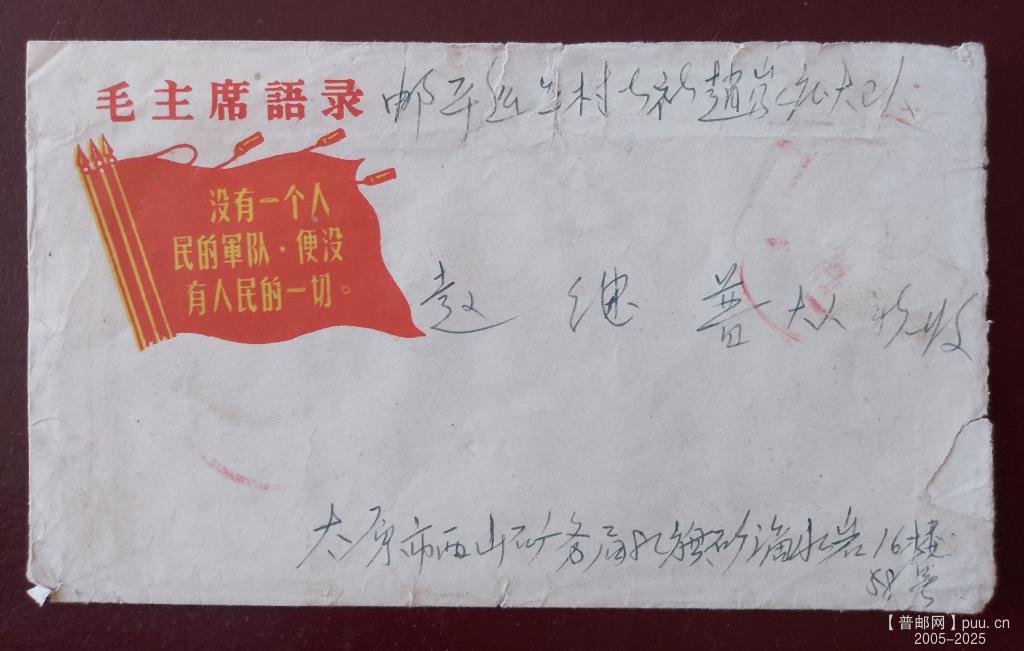 毛主席語录
没有一个人
民的軍队·便没
有人民的一切。
村 大队
赵 继 普 大人 收
太原市西山矿务局红旗矿滴水岩16楼
58号
【普邮网】puu.cn
2005-2025